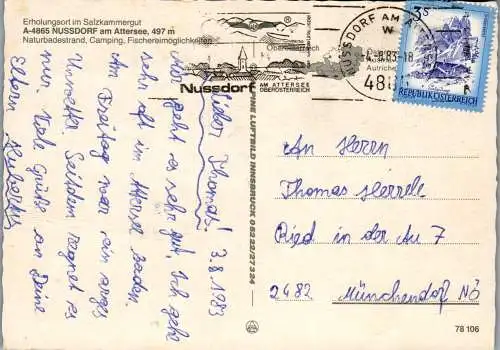 Erholungsort im Salzkammergut
A-4865 NUSSDORF am Attersee, 497 m
Naturbadestrand, Camping, Fischereimöglichkeiten
Oberösterreich
Nussdorf AM ATTERSEE
OBERÖSTERREICH
NUSSDORF AM
83-18
48
3S
REPUBLIK ÖSTERREICH
3.8.1983
Lieber Thomas!
Mir geht es sehr gut. Ich gehe
sehr oft im Attersee baden.
Am Freitag war ein arges
Unwetter. Seitdem regnet es
nur. Viele Grüße an Deine
Eltern Hubertus
ALPINE LUFTBILD INNSBRUCK 05222/27334
An Herrn
Thomas
Ried in der Au 7
2482 Münchendorf NÖ
78 106